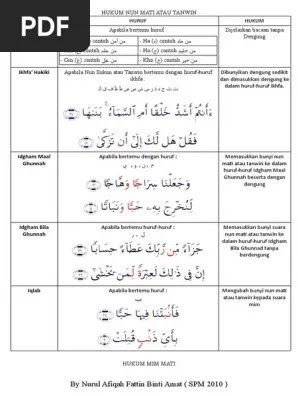 HUKUM NUN MATI ATAU TANWIN
PDF
HURUF
HUKUM
Apabila bertemu huruf
Dijelaskan bacaan tanpa
Dengung
contoh من آمن
- Ha (ح) contoh من حاد
contoh
- Ha (ه) contoh
- Gin (غ) contoh من غل
- Kho (خ) contoh من خير
Ikhfa' Hakiki
Apabila Nun Sakun atau Tanwin bertemu dengan huruf-huruf
ikhfa.
ت ث ج د ذ ز س ش ص ض ط ظ ف ق ك
Dibunyikan dengung sedikit
dan dimasukkan dengung ke
dalam huruf-huruf ikhfa.
ءَأَنتُمْ أَشَدُّ خَلْقًا أَمِ ٱلسَّمَآءُ ۚ بَنَىٰهَا
فَقُلْ هَل لَّكَ إِلَىٰٓ أَن تَزَكَّىٰ
Idgham Maal
Ghunnah
Apabila bertemu dengan huruf :
م ، ن ، و ، ي
Memasukkan bunyi nun
mati atau tanwin ke dalam
huruf-huruf Idgham Maal
Ghunnah beserta dengan
dengung
وَجَعَلْنَا سِرَاجًا وَهَّاجًا
لِّنُخْرِجَ بِهِۦ حَبًّا وَنَبَاتًا
Idgham Bila
Ghunnah
Apabila bertemu huruf-huruf :
ل ، ر
Memasukkan bunyi suara
nun mati atau tanwin ke
dalam huruf-huruf Idgham
Bila Ghunnah tanpa
berdengung
جَزَآءً مِّن رَّبِّكَ عَطَآءً حِسَابًا
إِنَّ فِى ذَٰلِكَ لَعِبْرَةً لِّمَن يَخْشَىٰٓ
Iqlab
Apabila bertemu huruf :
ب
Mengubah bunyi nun mati
atau tanwin kepada suara
mim
فَأَنۢبَتْنَا فِيهَا حَبًّا
بِأَىِّ ذَنۢبٍ قُتِلَتْ
HUKUM MIM MATI
By Nurul Afiqah Fattin Binti Amat ( SPM 2010 )